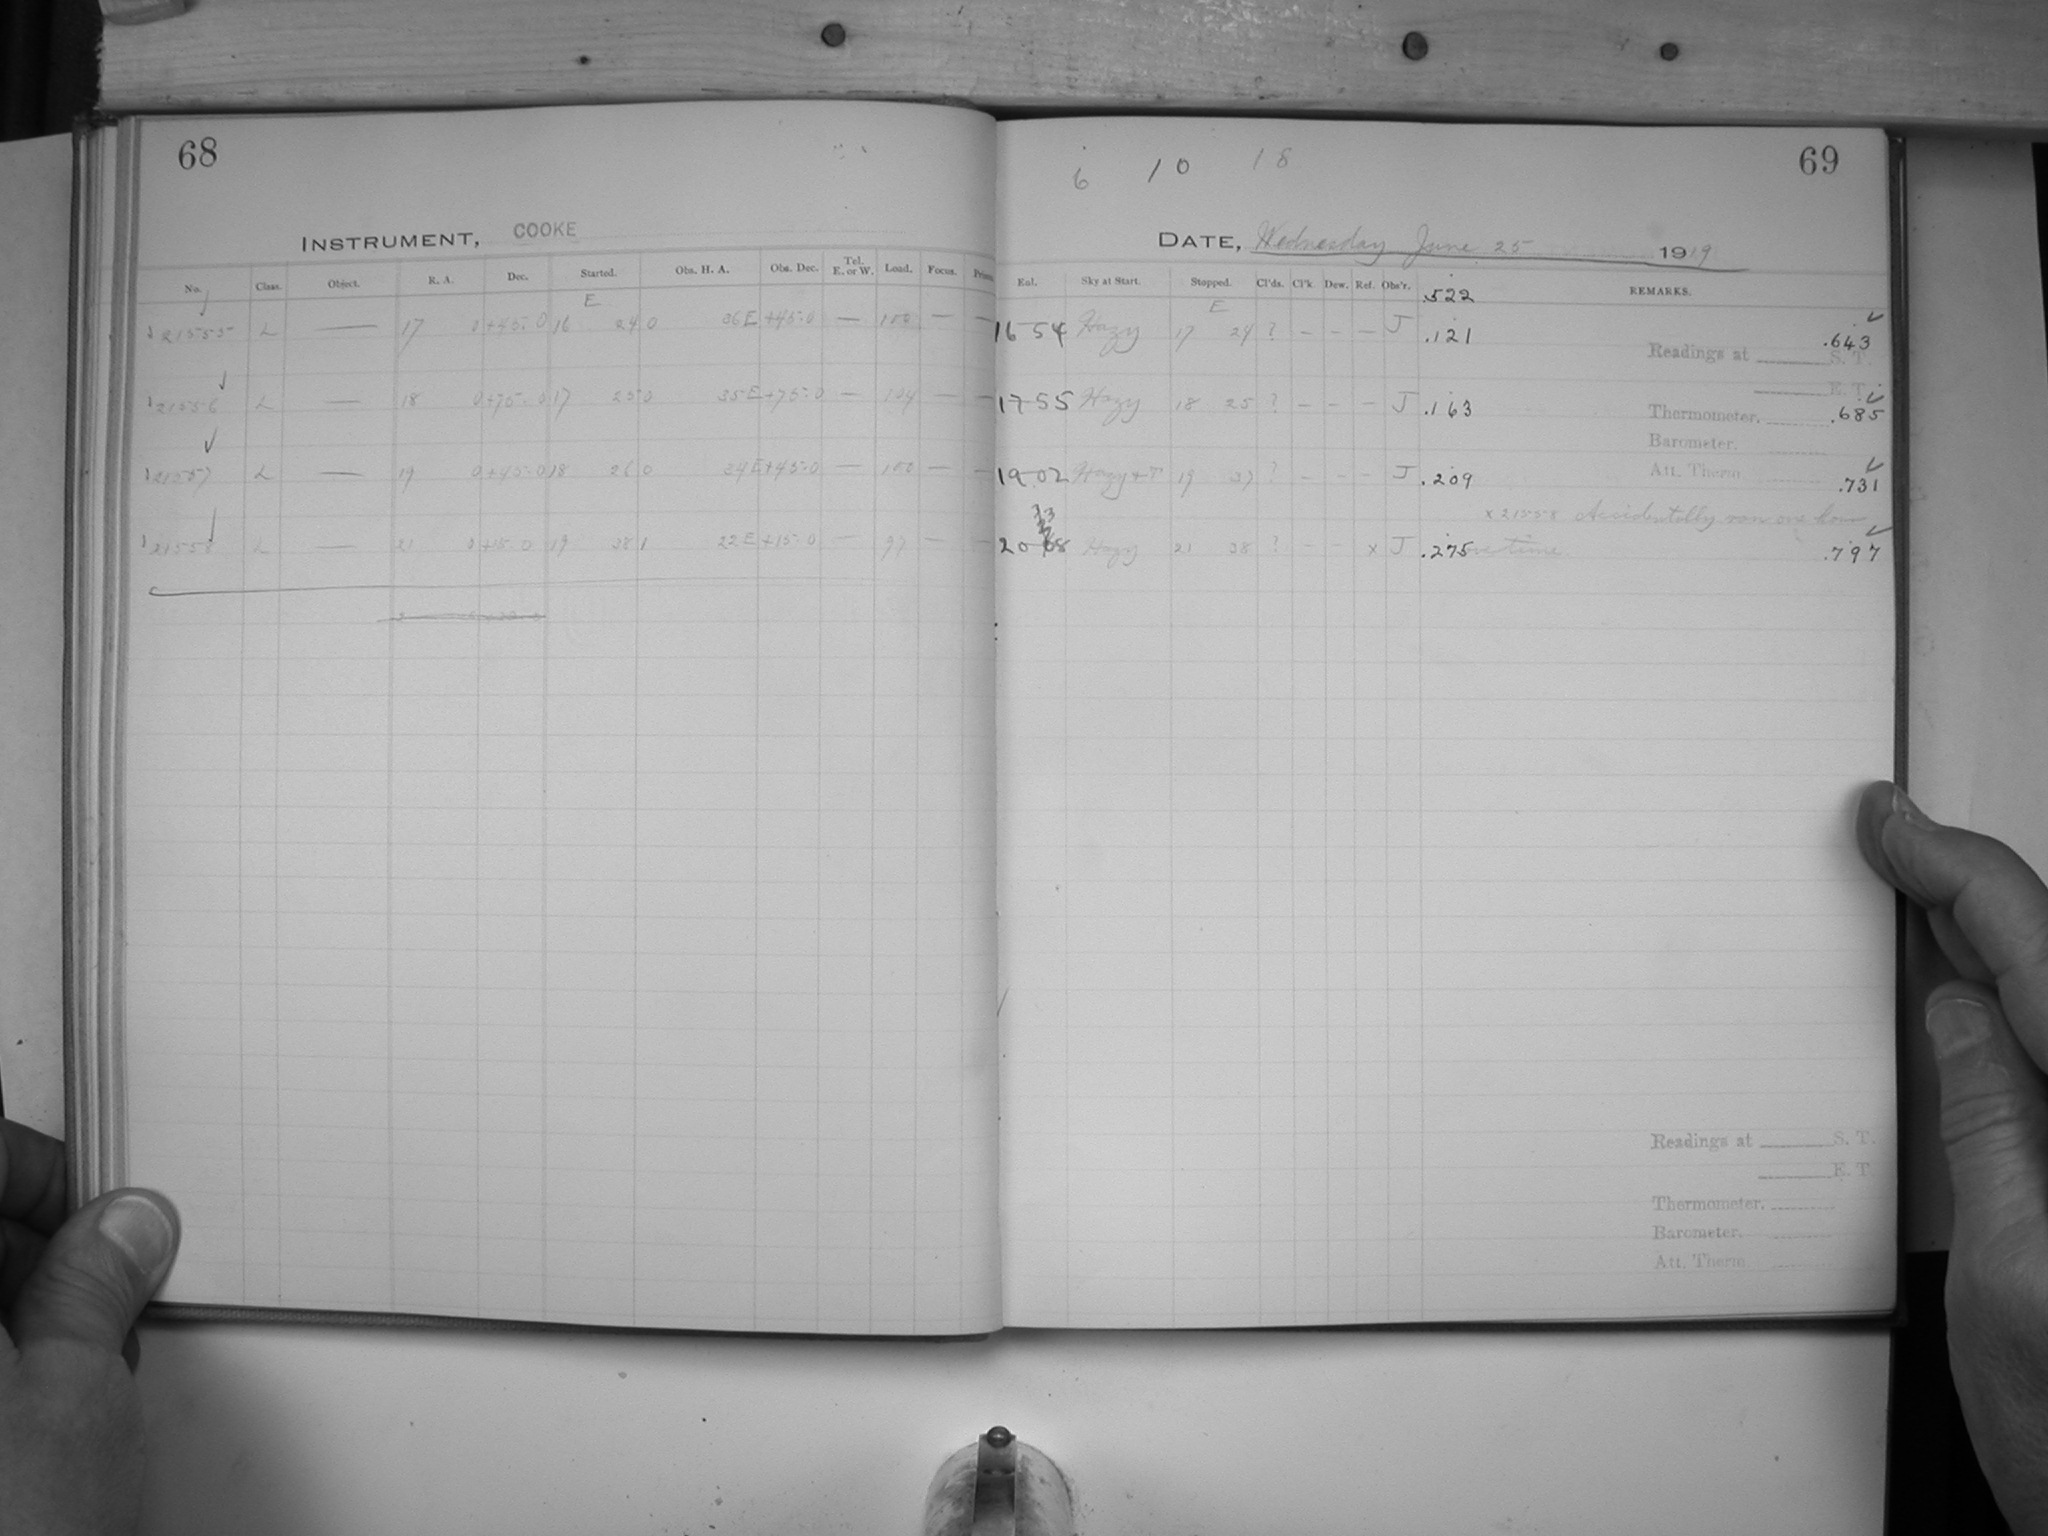 68
INSTRUMENT, COOKE
No. Class. Object. R. A. Dec. Started. Obs. H. A. Obs. Dec. Tel. E. or W. Load. Focus.
E
21555 L — 17 0 +45.0 16 24 0 36E +45.0 — 100 — —
21556 L — 18 0 +75.0 17 25 0 35E +75.0 — 104 — —
21557 L — 19 0 +45.0 18 26 0 34E +45.0 — 100 — —
21558 L — 21 0 +15.0 19 38 1 22E +15.0 — 97 — —
6 10 18
69
DATE, Wednesday June 25 1919
Eql. Sky at Start. Stopped. Cl'ds. Cl'k. Dew. Ref. Obs'r. .522 REMARKS.
E
16 54 Hazy 17 24 ? – – – J .121 .643
Readings at S. T.
E. T.
17 55 Hazy 18 25 ? – – – J .163 .685
Thermometer.
Barometer.
Att. Therm
19 02 Hazy + T 19 37 ? – – – J .209 .731
x 21558 Accidentally ran one hour
20 Hazy 21 38 ? – – x J .275 overtime .797
Readings at S. T.
E. T
Thermometer.
Barometer.
Att. Therm